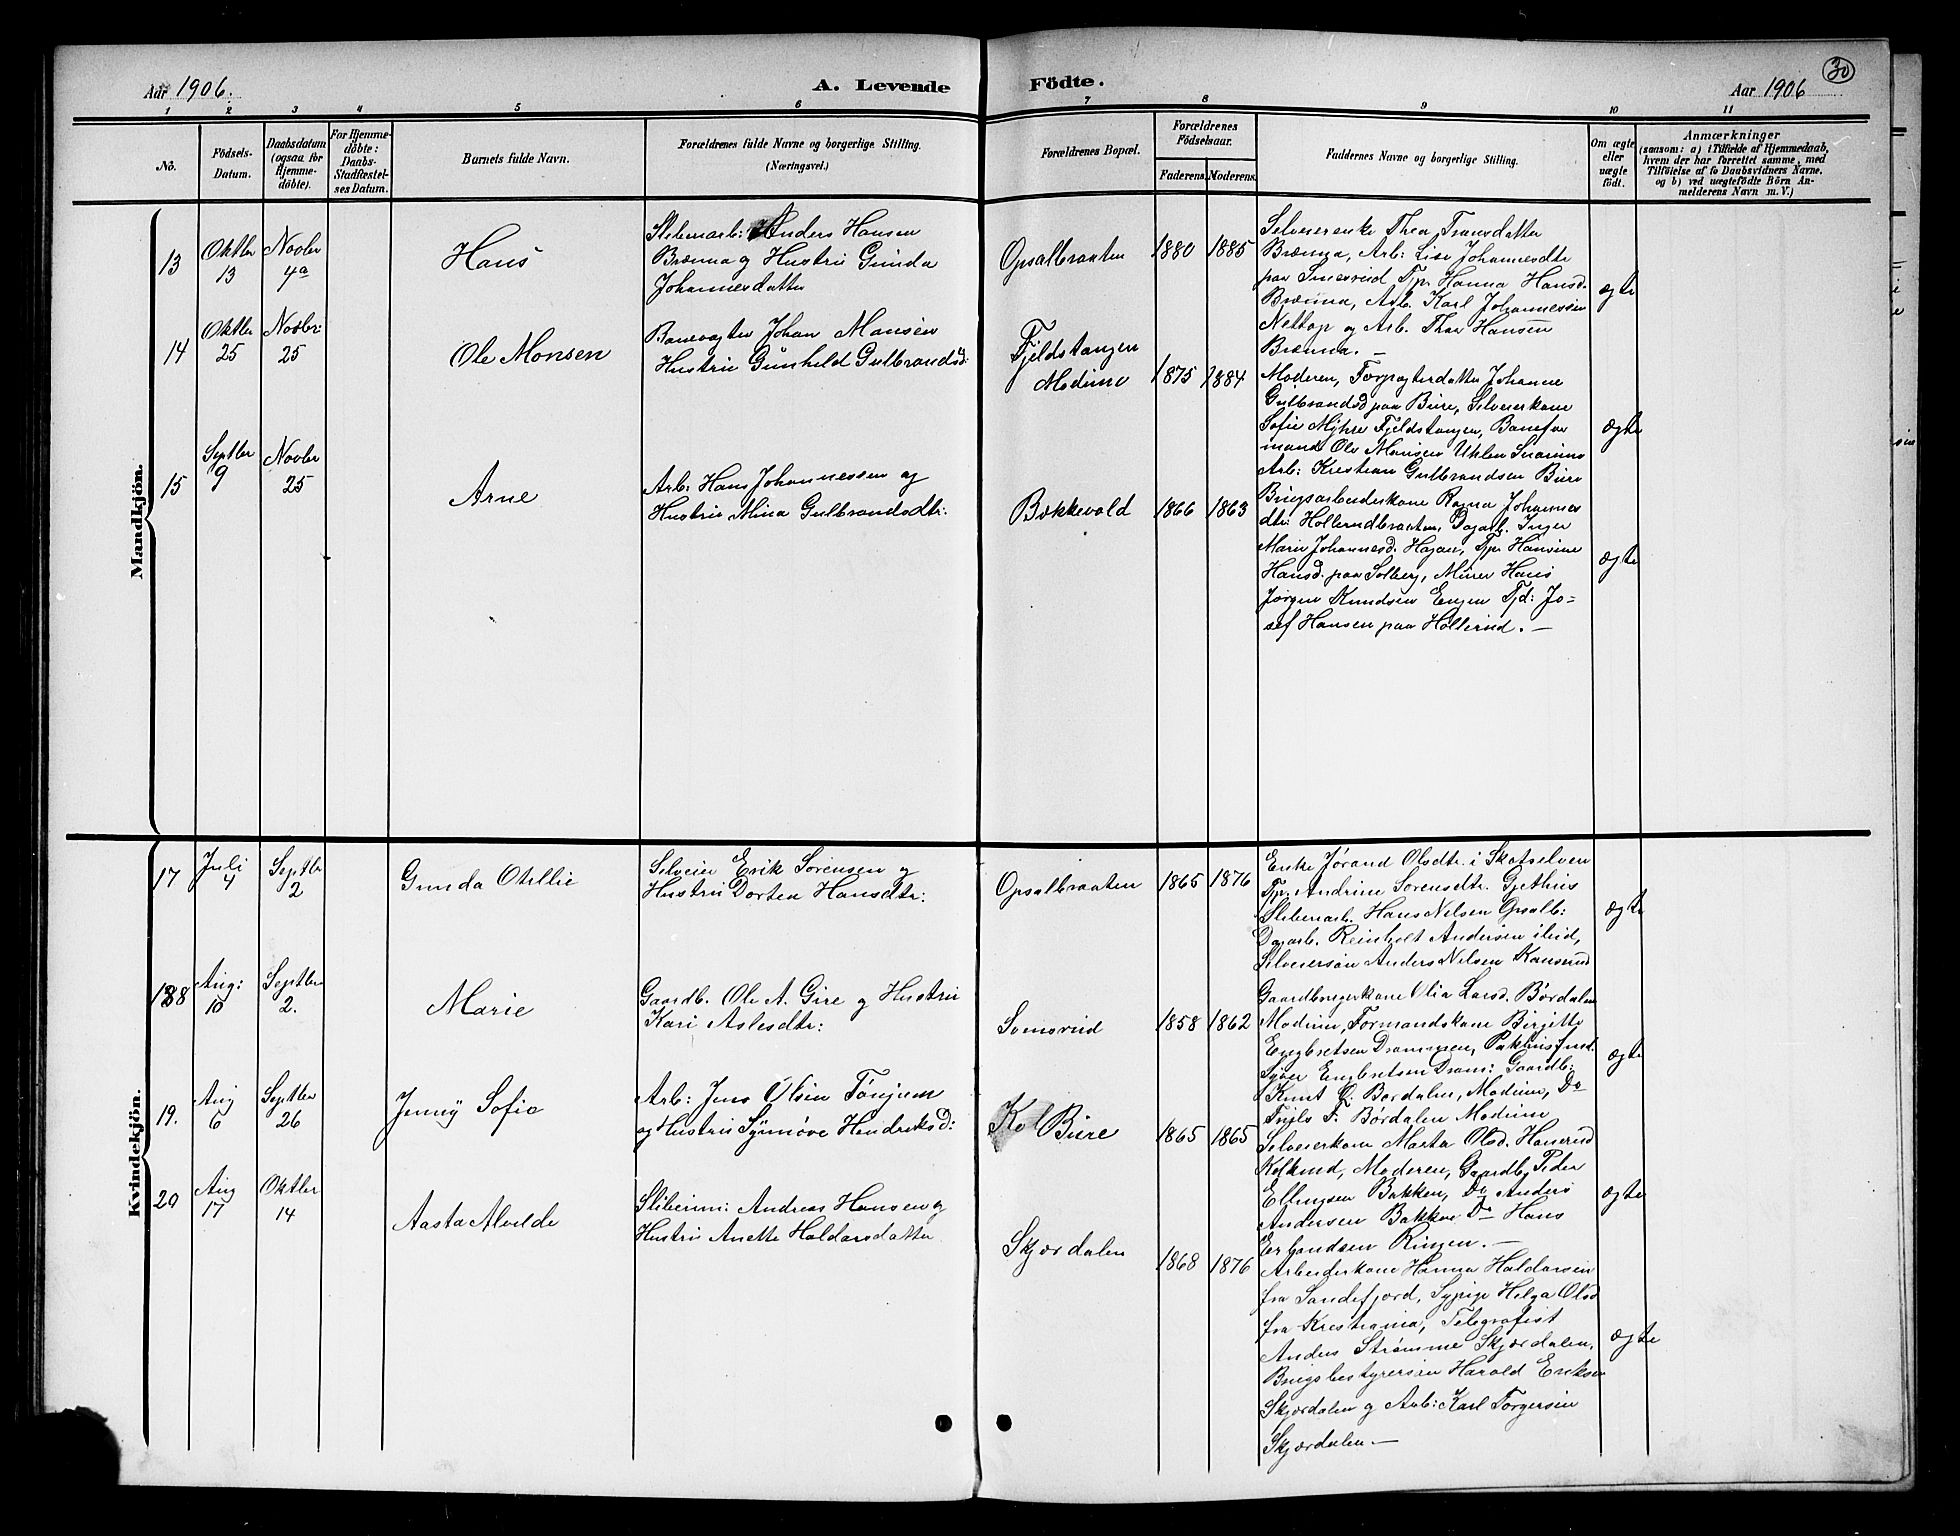 Aar 1906. A. Levende Födte. Aar 1906 30
1 2 3 4 5 6 7 8 9 10 11
No.
Födsels-
Datum.
Daabsdatum
(ogsaa for
Hjemme-
döbte).
For Hjemme-
döbte:
Daabs-
Stadfæstel-
ses Datum.
Barnets fulde Navn.
Forældrenes fulde Navne og borgerlige Stilling.
(Næringsvei.)
Forældrenes Bopæl.
Forældrenes
Födselsaar.
Faderens. Moderens.
Faddernes Navne og borgerlige Stilling.
Om ægte
eller
uægte
födt.
Anmærkninger
(saasom: a) i Tilfælde af Hjemmedaab,
hvem der har forrettet samme, med
Tilföielse af to Daabsvidners Navne.
og b) ved uægtefödte Börn An-
melderens Navn m. V.)
Mandkjön.
13
Oktbr
13
Novbr
4de
Hans
Sliberiarb: Anders Hansen
Brænna og Hustru Gunda
Johannesdatter
Opsalbraaten
1880 1885
Selveierenke Thea Fransdatter
Brænna, Arb: Lise Johannesdtr
paa Smersrud Tjp. Hanna Hansd.
Brænna, Arb. Karl Johannessen
Nettop og Arb. Thor Hansen
Brænna. —
ægte
14
Oktbr
25
Novbr:
25
Ole Monsen
Banevogter Johan Monsen
Hustru Gunhild Gulbrandsd:
Fjeldstangen
Modum
1875 1884
Moderen, Forpagterdatter Johanne
Gulbrandsd paa Bure, Selveierkone
Sofie Myhre Fjeldstangen, Banefor
mand Ole Monsen Uhlen Snarum
Arb: Kristian Gulbrandsen Bure
ægte
15
Septbr
9
Novbr
25
Arne
Arb: Hans Johannessen og
Hustru Mina Gulbrandsdtr:
Bækkevold
1866 1863
Brugsarbeiderkone Ragna Johannes
dtr: Hollerudbraaten, Dagarb. Inger
Marie Johannesd. Hagan, Tjp. Hansine
Hansd. paa Solberg, Murer Hans
Jørgen Knudsen Engen Tjd: Jo=
sef Hansen paa Hollerud. —
ægte
Kvindekjön.
17
Juli
4
Septbr
2
Gunda Otillie
Selveier Erik Sørensen og
Hustru Dorten Hansdtr:
Opsalbraaten
1865 1876
Enke Jørand Olsdtr. i Skotselven
Tjp. Andrine Sørensdtr. Gjethus
Sliberiarb. Hans Nilsen Opsalb:
Dagarb. Reinholt Andersen ibid,
Selveiersøn Anders Nilsen Kanserud
ægte
18
Aug:
10
Septbr
2.
Marie
Gaardb. Ole A. Gire og Hustru
Kari Aslesdtr:
Somsrud
1858 1862
Gaardbrugerkone Olia Larsd. Børdalen
Modum, Formandskone Birgitte
Engbretsen Drammen, Pakhusfmd.
Syver Engbretsen Dram: Gaardb:
Knut Børdalen, Modum, Do
Truls F. Børdalen Modum
ægte
19.
Aug
6
Septbr
26
Jenny Sofie
Arb: Jens Olsen Tønjum
og Hustru Synnøve Hendriksd:
Kol Bure
1865 1865
Selveierkone Marta Olsd. Hanerud
Moderen, Gaardb. Peder
Ellingsen Bakken, Do Anders
Andersen Bakken Do Hans
Erlandsen Ringen. —
ægte
20
Aug
17
Oktbr
14
Aasta Alvilde
Sliberim: Andreas Hansen og
Hustru Anette Haldorsdatter
Skjærdalen
1868 1876
Arbeiderkone Hanna Haldorsen
fra Sandefjord, Sypige Helga Olsd
fra Kristiania, Telegrafist
Anders Strømme Skjærdalen,
Brugsbestyrersøn Harald Eriksen
Skjærdalen og Arb: Karl Torgersen
Skjærdalen. —
ægte